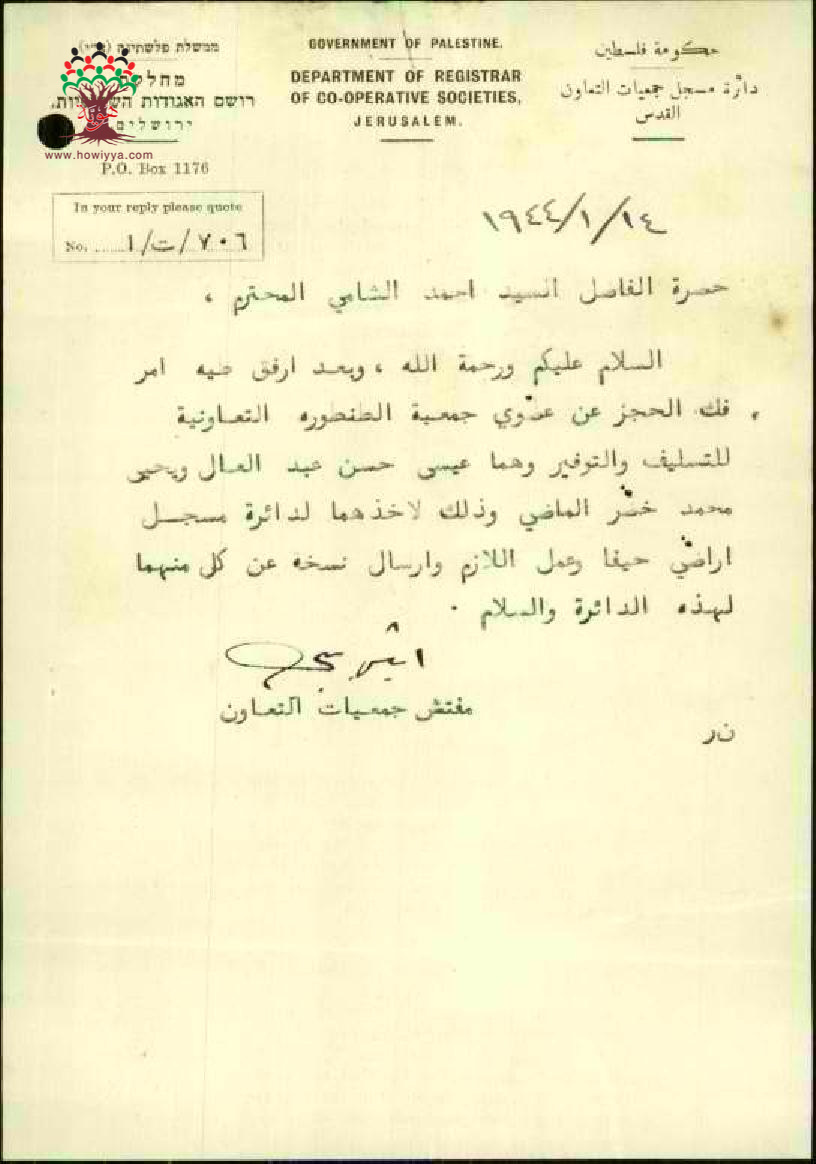 ממשלת פלשתינה (א״י)
רושם האגודות
ירושלים
www.howiyya.com
P.O. Box 1176
GOVERNMENT OF PALESTINE.
DEPARTMENT OF REGISTRAR
OF CO-OPERATIVE SOCIETIES,
JERUSALEM.
حكومة فلسطين
دائرة مسجل جمعيات التعاون
القدس
In your reply please quote
No. ١/ت/٧٠٦
١٩٤٤/١/١٤
حضرة الفاضل السيد احمد الشامي المحترم ،
السلام عليكم ورحمة الله ، وبعد ارفق طيه امر
فك الحجز عن عضوي جمعية الطنطوره التعاونية
للتسليف والتوفير وهما عيسى حسن عبد العال ويحيى
محمد خضر الماضي وذلك لاخذهما لدائرة مسجل
اراضي حيفا وعمل اللازم وارسال نسخه عن كل منهما
لهذه الدائرة والسلام .
مفتش جمعيات التعاون
ن ر